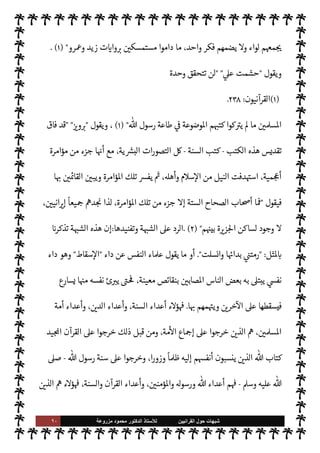 يجمعهم لواء ولا يضمهم فكر واحد، ما داموا مستمسكين بروايات زيد وعمرو" (١) .
ويقول "حشمت علي" "لن تتحقق وحدة
(١)القرآنيون: ٢٣٨.
المسلمين ما لم يتركوا كتبهم الموضوعة في طاعة رسول الله" (١) . ويقول "برويز" "قد فاق
تقديس هذه الكتب - كتب السنة - كل التصورات البشرية، مع أنها جزء من مؤامرة
أعجمية، استهدفت النيل من الإسلام وأهله، ثم يفسر تلك المؤامرة ويبين القائمين بها
فيقول "فما أصحاب الصحاح الستة إلا جزء من تلك المؤامرة، لذا نجدهم جميعاً إيرانيين،
لا وجود لساكن الجزيرة بينهم" (٢) .الرد على الشبهة وتفنيدها:إن هذه الشبهة تذكرنا
بالمثل: "رمتني بدائها وانسلت". أو ما يقول علماء النفس عن داء "الإسقاط" وهو داء
نفسي يبتلى به بعض الناس المصابين بنقائص معينة، فحتى يبرئ نفسه منها يسارع
فيسقطها على الآخرين ويتهمهم بها. فهؤلاء أعداء السنة، وأعداء الدين، وأعداء أمة
المسلمين، هم الذين خرجوا على إجماع الأمة، ومن قبل ذلك خرجوا على القرآن المجيد
كتاب الله الذين ينسبون أنفسهم إليه ظلماً وزورا، وخرجوا على سنة رسول الله - صلى
الله عليه وسلم - فهم أعداء الله ورسوله والمؤمنين، وأعداء القرآن والسنة، فهؤلاء هم الذين
شبهات حول القرآنيين للأستاذ الدكتور محمود مزروعة ٦٠